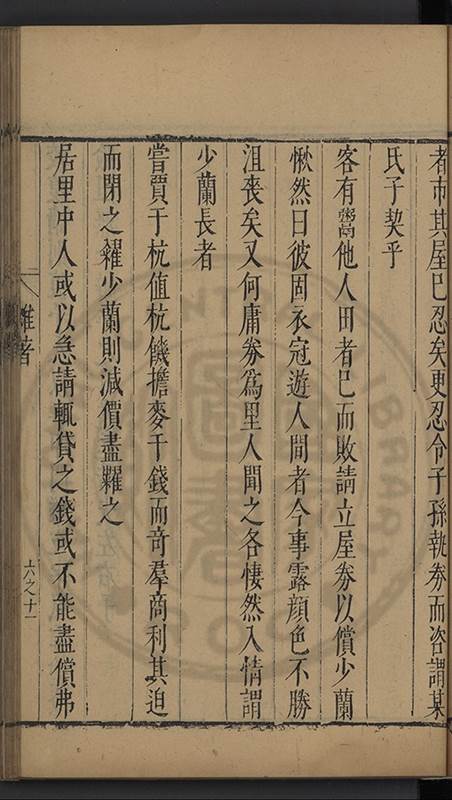 都市其屋已忍矣更忍令子孫執券而咨謂某
氏子契乎
客有鬻他人田者已而敗請立屋券以償少蘭
愀然曰彼固衣冠遊人間者今事露顔色不勝
沮喪矣又何庸券爲里人聞之各悽然入情謂
少蘭長者
嘗賈于杭值杭饑擔麥千錢而奇羣商利其迫
而閉之糴少蘭則減價盡糶之
居里中人或以急請輒貸之錢或不能盡償弗
雜著
六之十一